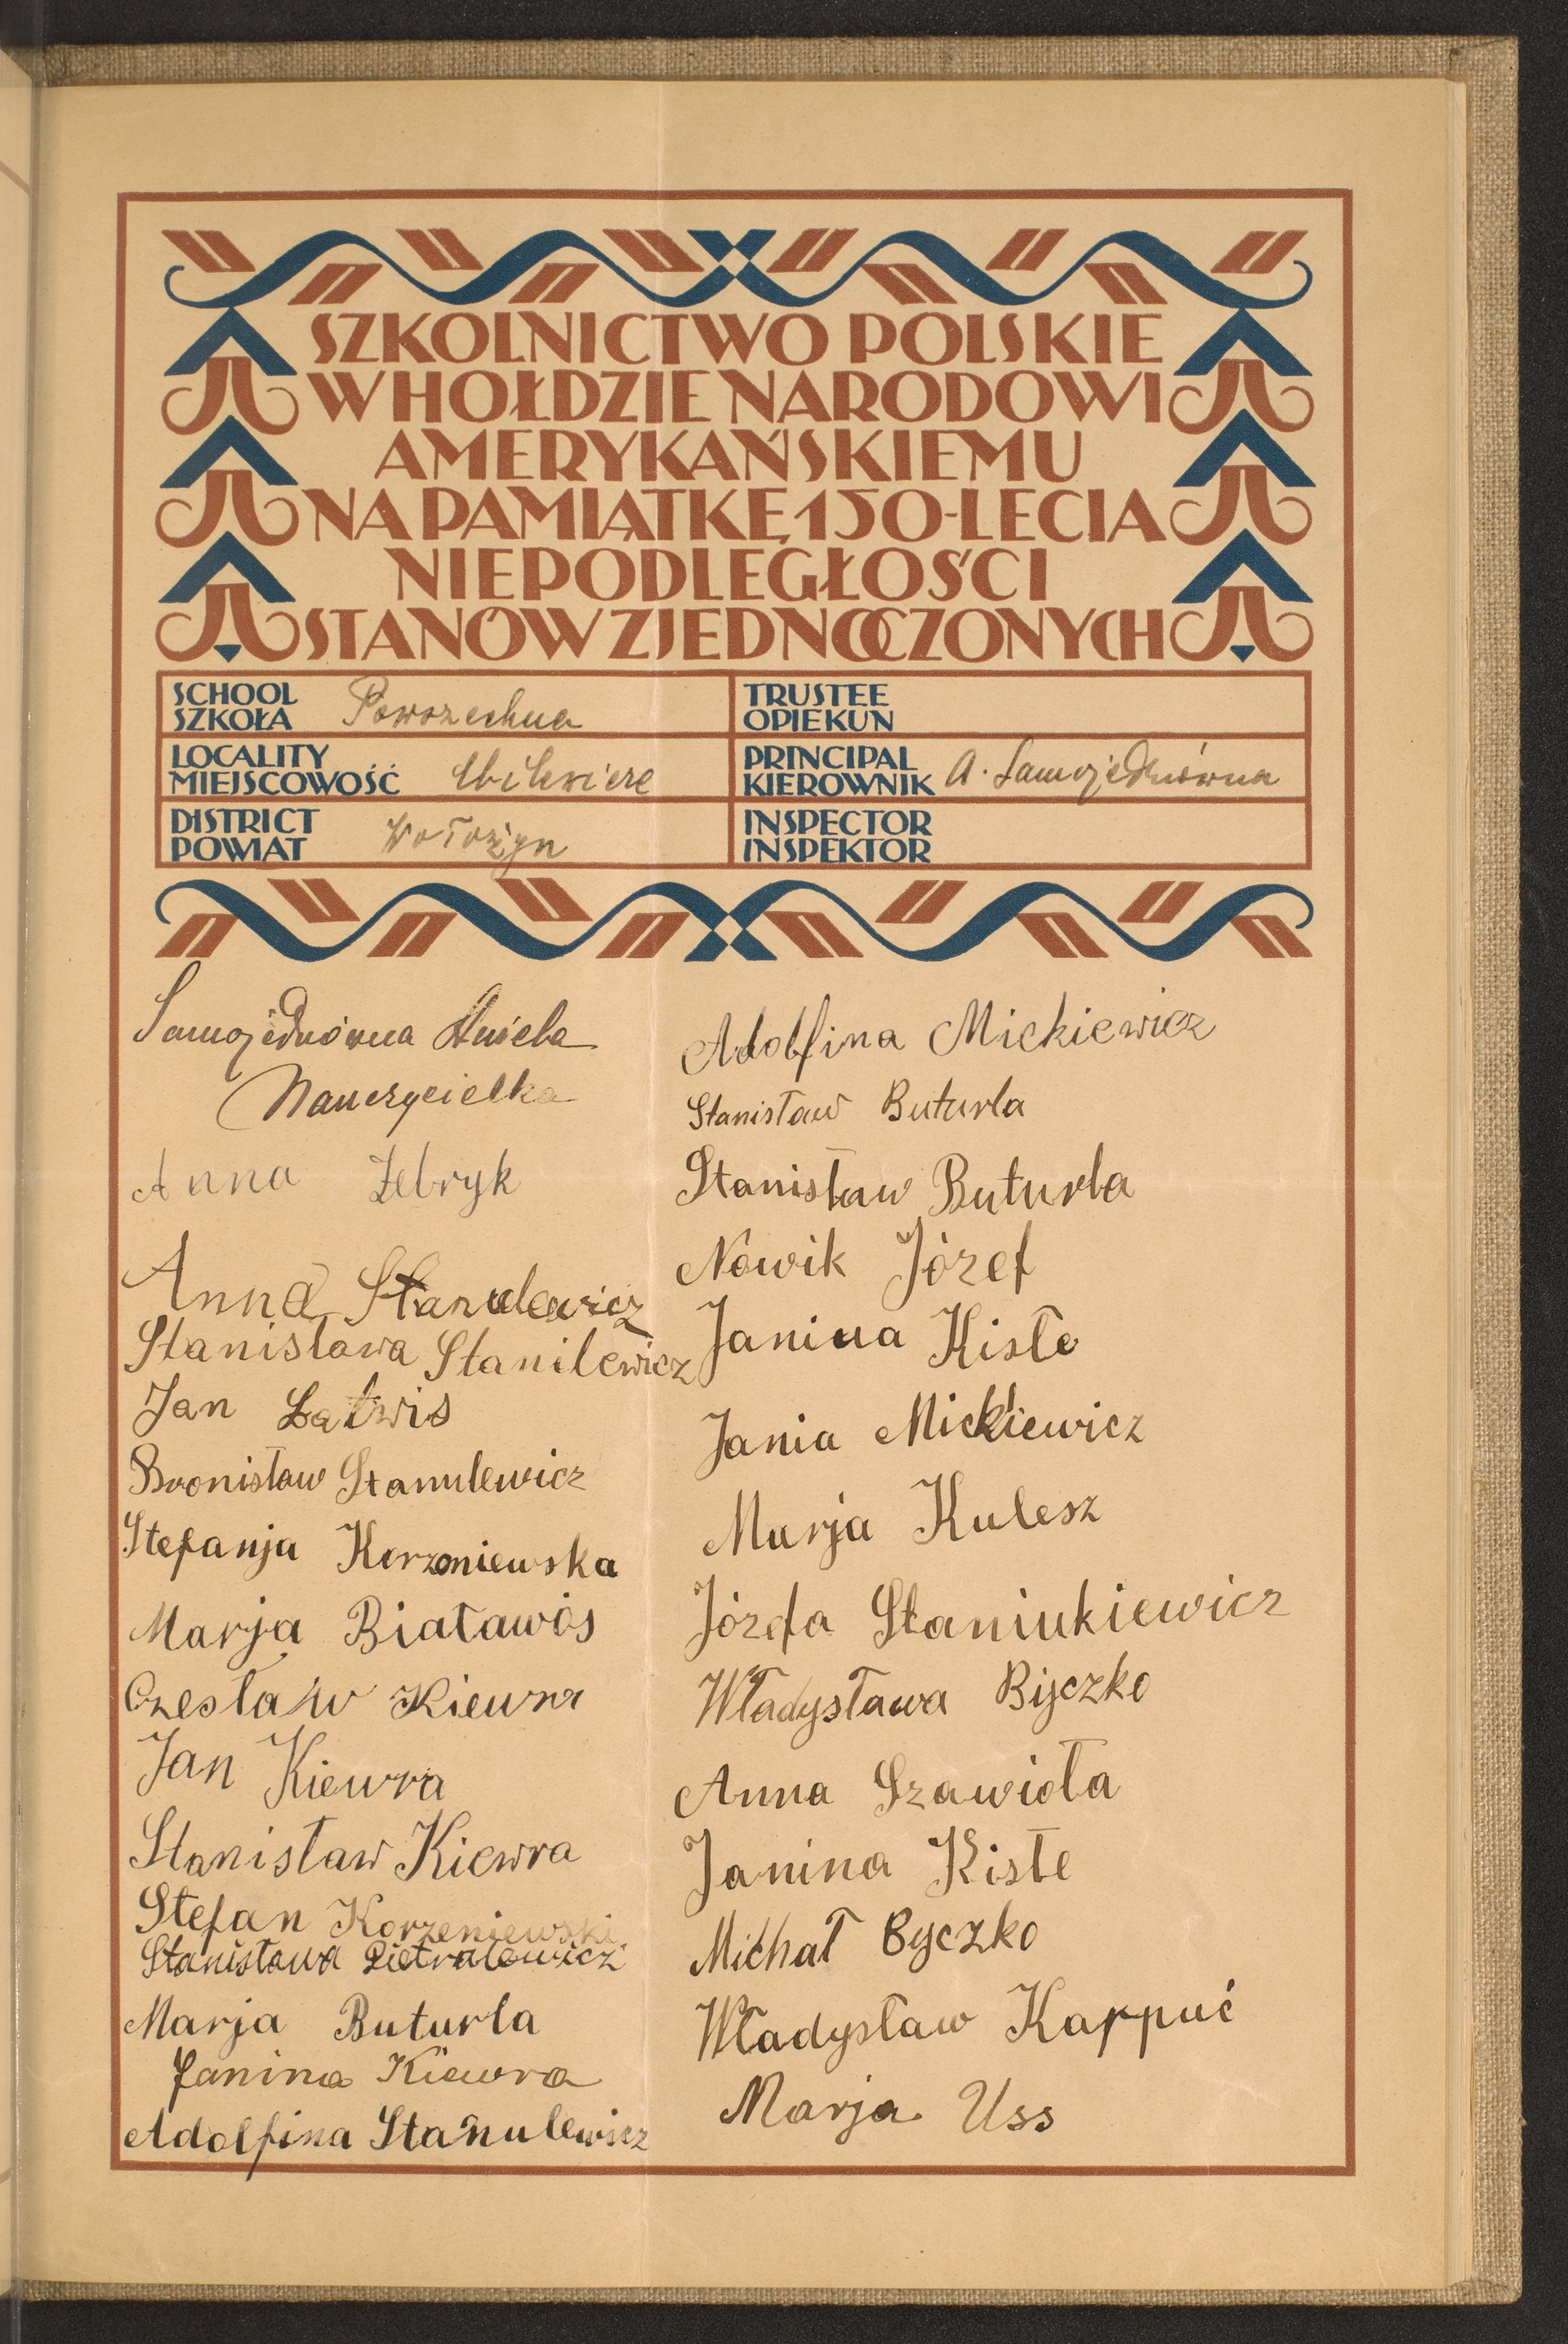 SZKOLNICTWO POLSKIE
W HOŁDZIE NARODOWI
AMERYKAŃSKIEMU
NA PAMIĄTKĘ 150-LECIA
NIEPODLEGŁOŚCI
STANÓW ZJEDNOCZONYCH
SCHOOL
SZKOŁA Powszechna
TRUSTEE
OPIEKUN
LOCALITY
MIEJSCOWOŚĆ
PRINCIPAL
KIEROWNIK A. Samojednówna
DISTRICT
POWIAT Wołożyn
INSPECTOR
INSPEKTOR
Samojednówna Aniela
Nauczycielka
Anna Żebryk
Anna Stanulewicz
Stanisława Stanilewicz
Jan Łatwis
Bronisław Stanulewicz
Stefanja Korzoniewska
Marja Białawós
Czesław Kiewra
Jan Kiewra
Stanisław Kiewra
Stefan Korzeniewski
Stanisława Pietralewicz
Marja Buturla
Janina Kiewra
Adolfina Stanulewicz
Adolfina Mickiewicz
Stanisław Buturla
Stanisław Buturla
Nowik Józef
Janina Kisłe
Jania Mickiewicz
Marja Kulesz
Józefa Staniukiewicz
Władysława Byczko
Anna Szawioła
Janina Kisłe
Michał Byczko
Władysław Karpuć
Marja Uss